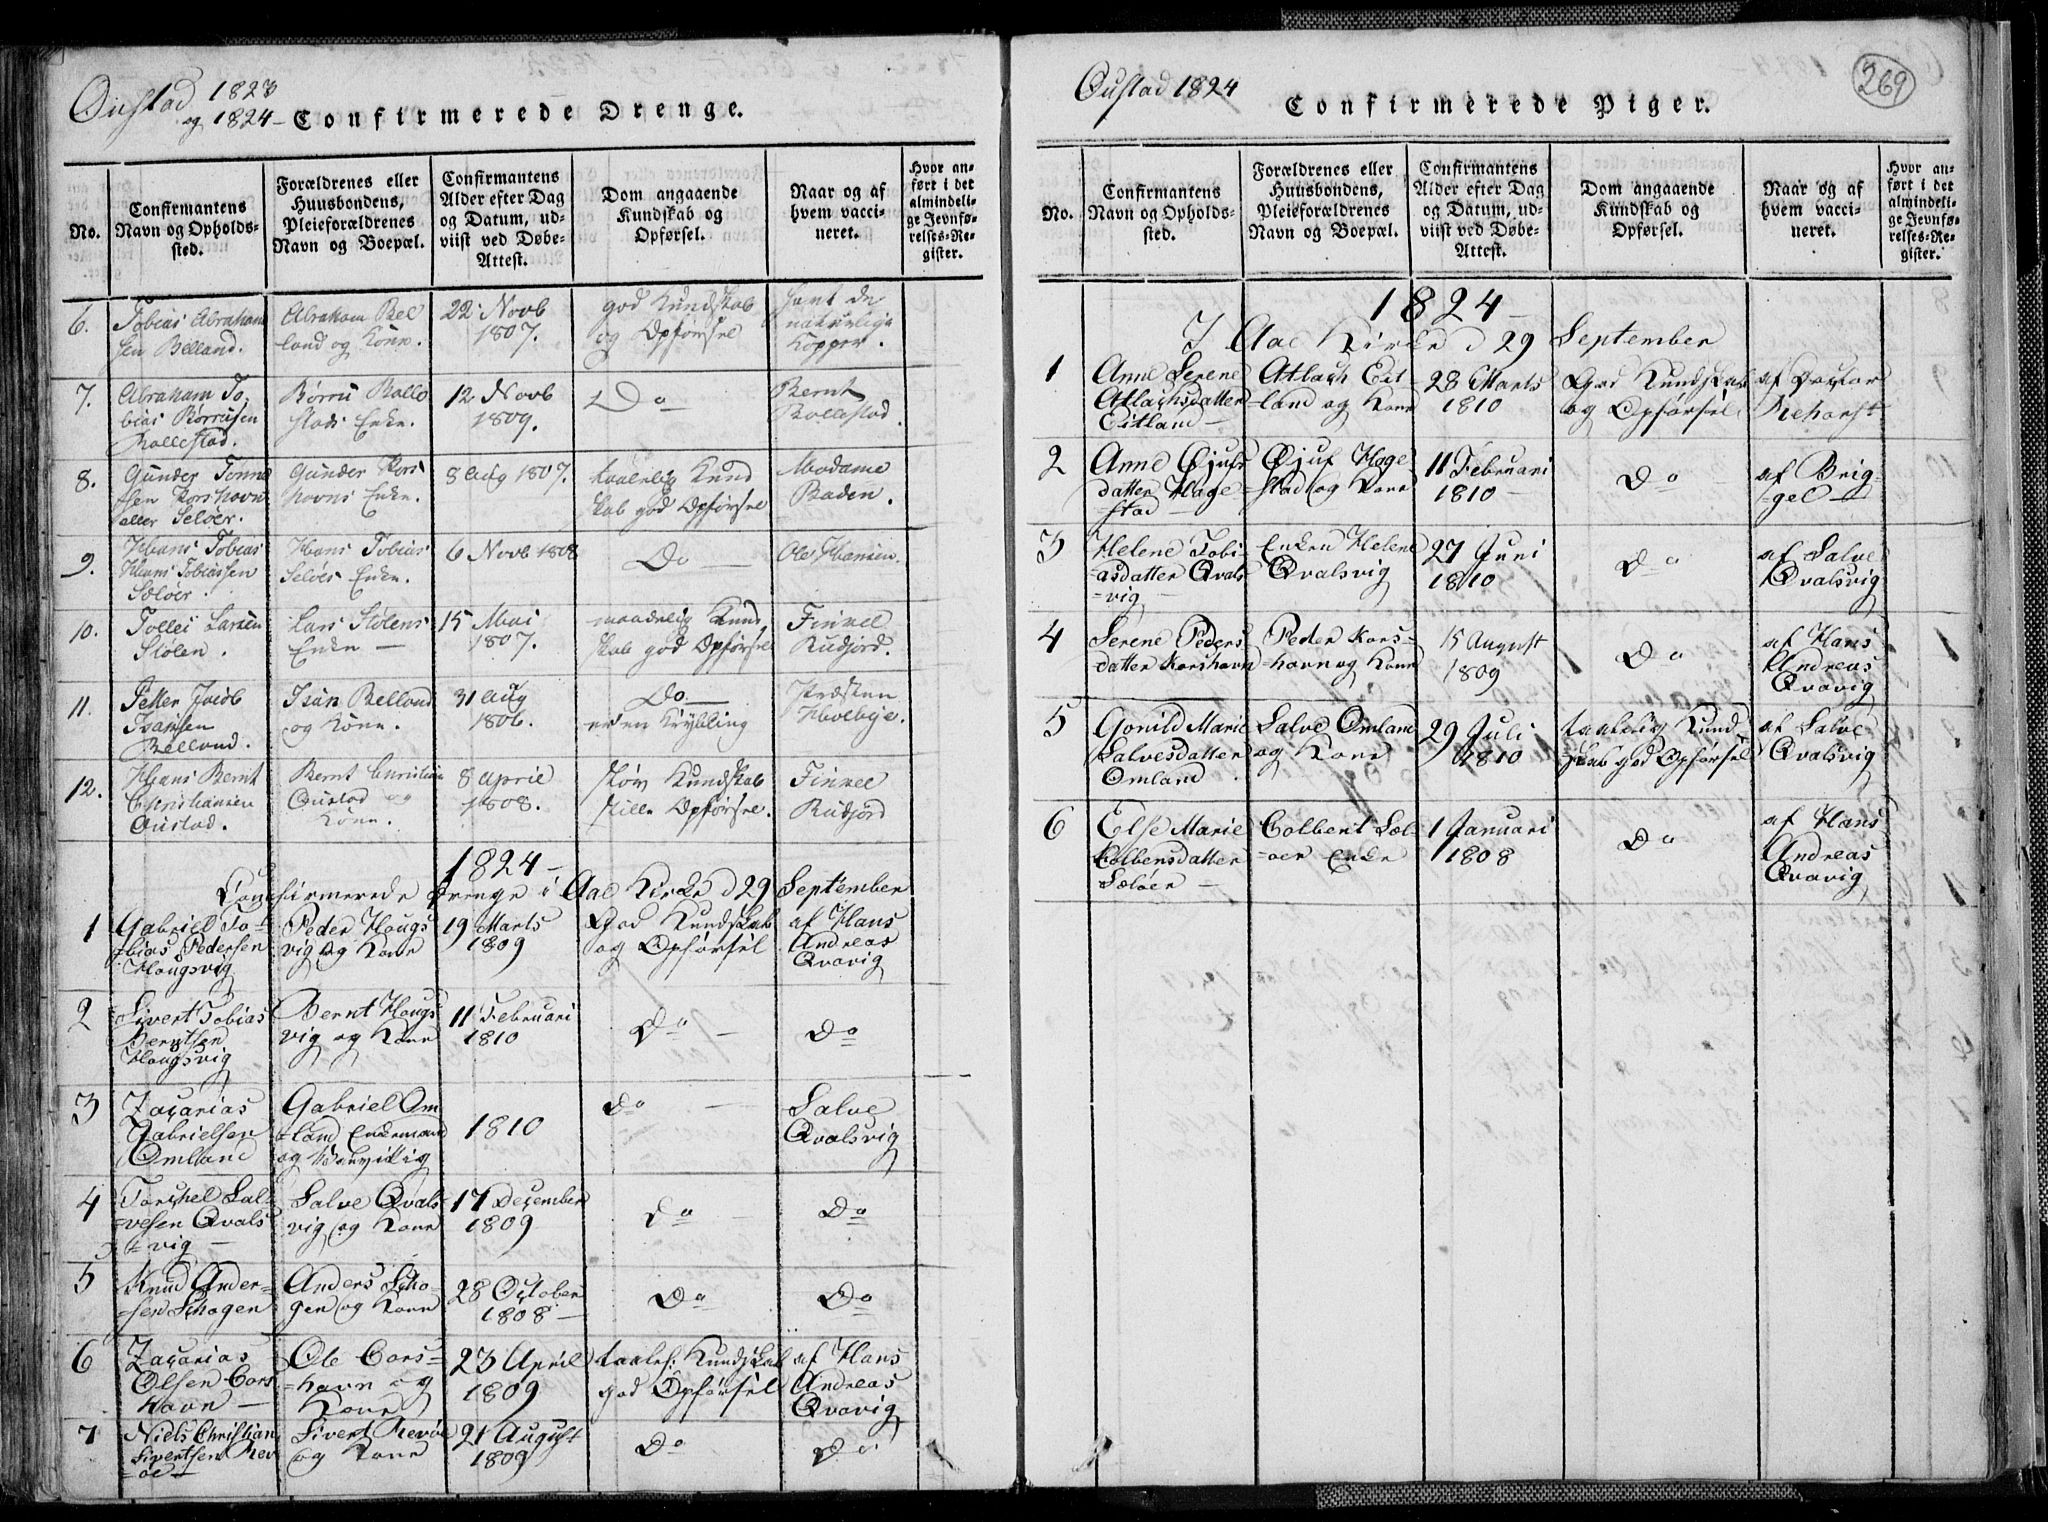 Oustad 1823
og 1824 –
Confirmerede Drenge.
No.
Confirmantens
Navn og Opholds-
sted.
Forældrenes eller
Huusbondens,
Pleieforældrenes
Navn og Boepæl.
Confirmantens
Alder efter Dag
og Datum, ud-
viist ved Døbe-
Attest.
Dom angaaende
Kundskab og
Opførsel.
Naar og af
hvem vacci-
neret.
Hvor an-
ført i det
almindeli-
ge Jevnfø-
relses-Re-
gister.
6.
Tobias Abraham
sen Belland.
Abraham Bel
land og Kone.
22 Novb
1807.
god Kundskab
og Opførsel
havt de
naturlige
Kopper.
7.
Abraham To
bias Børrusen
Rollestad.
Børru Rolle
stads Enke.
12 Novb
1809.
Do
Bernt
Rollestad.
8.
Gunder Tønne
sen Korshavn
eller Seløer.
Gunder Kors
havns Enke.
8 Aug 1807.
taalelig Kund
skab god Opførsel
Madame
Baden.
9.
Hans Tobias
Hans Tobiassen
Seløer.
Hans Tobias
Seløes Enke.
6 Novb 1808
Do
Ole Hansen.
10.
Tollei Larsen
Stølen.
Lars Stølens
Enke –
15 Mai
1807.
maadelig Kund
skab god Opførsel
Finkel
Rudjord.
11.
Peter Jacob
Isaksen
Belland.
Isak Belland
og Kone.
31 Aug
1806.
Do
er en Krybling
Præsten
Holbye.
12.
Hans Bernt
Christiansen
Oustad.
Bernt Christian
Oustad og
Kone.
8 April
1808.
sløv Kundskab
stille Opførsel.
Finkel
Rudjord
1824 –
Confirmerede Drenge i Aae Kirke d 29 September
1
Gabriel To-
bias Pedersen
Hougsvig
Peder Hougs
vig og Kone
19 Marts
1809
God Kundskab
og Opførsel
af Hans
Andreas
Qvavig
2
Sivert Tobias
Berntsen
Hougsvig
Bernt Hougs
vig og Kone
11 Februari
1810
Do –
Do
3
Zacarias
Gabrielsen
Omland
Gabriel Om
land Enkemand
og
1810
Do –
Salve
Qvalsvig
4
Torkel Sal-
vesen Qvals
vig –
Salve Qvals-
vig og Kone
17 December
1809
Do
Do
5
Knud Ander-
sen Schagen
Anders Scha-
gen og Kone
28 October
1808 –
Do
Do
6
Zacarias
Olsen Cors
havn –
Ole Cors-
havn og
Kone
23 April
1809
taalel: Kundskab
god Opførsel
af Hans
Andreas
Qvavig
7
Niels Christian
Sivertsen Rev
øe –
Sivert Revøe
og Kone
21 August
1809
Do
Do
Oustad 1824
Confirmerede Piger.
269
No.
Confirmantens
Navn og Opholds-
sted.
Forældrenes eller
Huusbondens,
Pleieforældrenes
Navn og Boepæl.
Confirmantens
Alder efter Dag
og Datum, ud-
viist ved Døbe-
Attest.
Dom angaaende
Kundskab og
Opførsel.
Naar og af
hvem vacci-
neret.
Hvor an-
ført i det
almindeli-
ge Jevnfø-
relses-Re-
gister.
1824 –
I Aae Kirke d 29 September
1
Anne Serene
Atlachsdatter
Eitland –
Atlach Eit-
land og Kone
28 Marts
1810
God Kundskab
og Opførsel
af Doctor
2
Anne Øjufs
datter Hage
stad
Øjuf Hage
stad og Kone
11 Februari
1810 –
Do
af Brig-
gel –
3
Helene Tobi-
asdatter Qvals
vig –
Enken Helene
Qvalsvig
27 Juni
1810
Do
af Salve
Qvalsvig
4
Serene Peders
datter Korshavn
Peder Kors-
havn og Kone
15 August
1809
Do
af Hans
Andreas
Qvavig
5
Gonild Marie
Salvesdatter
Omland
Salve Omland
og Kone
29 Juli
1810
taalelig Kund
skab god Opførsel
af Salve
Qvalsvig
6
Else Marie
Colbensdatter
Sæløer –
Colbent Sæl-
øer Enke
1 Januari
1808
Do
af Hans
Andreas
Qvavig